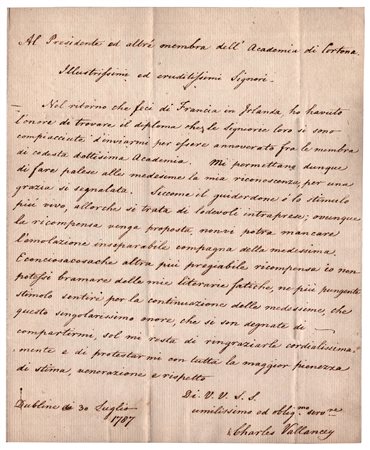 Al Presidente ed altri membra dell' Academia di Cortona.
Illustrissimi ed eruditissimi Signori.
Nel ritorno che feci di Francia in Irlanda, ho havuto
l'onore di trovare il diploma che le Signorie loro si sono
compiacciute d'inviarmi per essere annoverato fra le membra
di codesta dottissima Academia. Mi permettano dunque
di fare palese alle medesime la mia riconoscenza per una
grazia si segnalata. Siccome il guiderdone é lo stimulo
piú vivo, allorche si trata di lodevoli intraprese; ovunque
la ricompensa venga proposta, non vi potra mancare
l'emolazione inseparabile compagna della medesima.
E conciosacosache altra piú pregiabile ricompensa io non
potessi bramare delle mie literarie fatiche, ne piú pungente
stimolo sentire per la continuazione delle medesime, che
questo singolarissimo onore, che si son degnate di
compartirmi, sol mi resta di ringraziarle cordialissima-
mente e di protestarmi con tutta la maggior pienezza
di stima, venerazione e rispetto
Di V. V. S. S.
Dublino di 30 Luglio
1787
umilissimo ed obligmo servre
Charles Vallancey